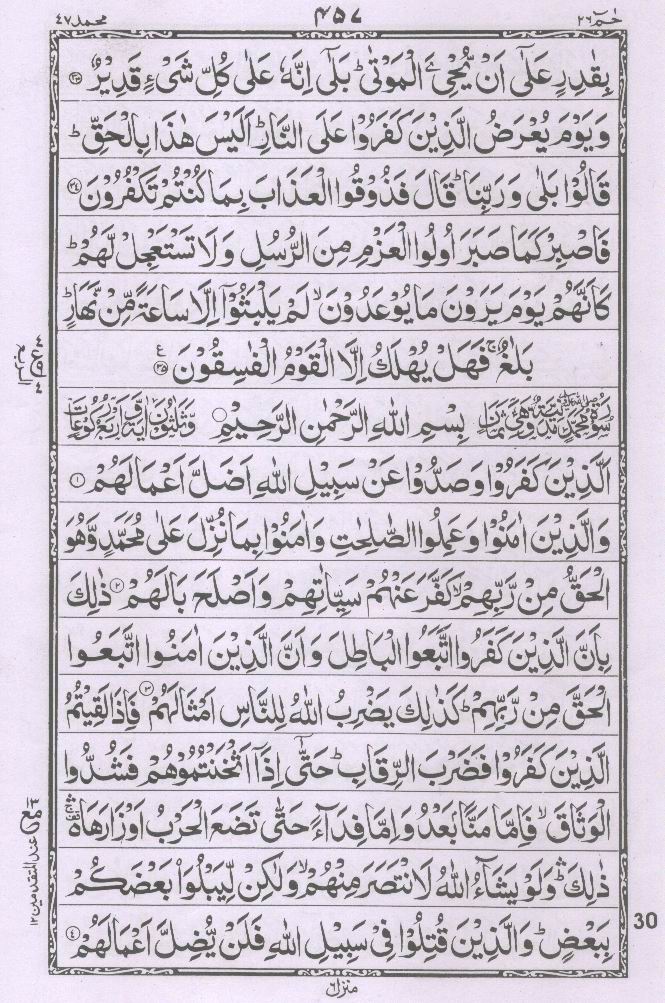 حٰمٓ ٢٦
٤٥٧
محمد ٤٧
بِقٰدِرٍ عَلٰٓى اَنْ يُّحْیِۦَ الْمَوْتٰى ؕ بَلٰٓى اِنَّهٗ عَلٰى كُلِّ شَىْءٍ قَدِيْرٌ ﴿٣٣﴾
وَيَوْمَ يُعْرَضُ الَّذِيْنَ كَفَرُوْا عَلَى النَّارِ ؕ اَلَيْسَ هٰذَا بِالْحَقِّ ؕ
قَالُوْا بَلٰى وَرَبِّنَا ؕ قَالَ فَذُوْقُوا الْعَذَابَ بِمَا كُنْتُمْ تَكْفُرُوْنَ ﴿٣٤﴾
فَاصْبِرْ كَمَا صَبَرَ اُولُوا الْعَزْمِ مِنَ الرُّسُلِ وَلَا تَسْتَعْجِلْ لَّهُمْ ؕ
كَاَنَّهُمْ يَوْمَ يَرَوْنَ مَا يُوْعَدُوْنَ ۙ لَمْ يَلْبَثُوْٓا اِلَّا سَاعَةً مِّنْ نَّهَارٍ ؕ
بَلٰغٌ ۚ فَهَلْ يُهْلَكُ اِلَّا الْقَوْمُ الْفٰسِقُوْنَ ﴿٣٥﴾ ع
سُوْرَةُ مُحَمَّدٍ مَّدَنِيَّةٌ وَّهِىَ ثَمَانٌ بِسْمِ اللّٰهِ الرَّحْمٰنِ الرَّحِيْمِ وَّثَلٰثُوْنَ اٰيَةً وَّاَرْبَعُ رُكُوْعَاتٍ
اَلَّذِيْنَ كَفَرُوْا وَصَدُّوْا عَنْ سَبِيْلِ اللّٰهِ اَضَلَّ اَعْمَالَهُمْ ﴿١﴾
وَالَّذِيْنَ اٰمَنُوْا وَعَمِلُوا الصّٰلِحٰتِ وَاٰمَنُوْا بِمَا نُزِّلَ عَلٰى مُحَمَّدٍ وَّهُوَ
الْحَقُّ مِنْ رَّبِّهِمْ ۙ كَفَّرَ عَنْهُمْ سَيِّاٰتِهِمْ وَاَصْلَحَ بَالَهُمْ ﴿٢﴾ ذٰلِكَ
بِاَنَّ الَّذِيْنَ كَفَرُوا اتَّبَعُوا الْبَاطِلَ وَاَنَّ الَّذِيْنَ اٰمَنُوا اتَّبَعُوا
الْحَقَّ مِنْ رَّبِّهِمْ ؕ كَذٰلِكَ يَضْرِبُ اللّٰهُ لِلنَّاسِ اَمْثَالَهُمْ ﴿٣﴾ فَاِذَا لَقِيْتُمُ
الَّذِيْنَ كَفَرُوْا فَضَرْبَ الرِّقَابِ ؕ حَتّٰٓى اِذَآ اَثْخَنْتُمُوْهُمْ فَشُدُّوا
الْوَثَاقَ ۙ فَاِمَّا مَنًّۢا بَعْدُ وَاِمَّا فِدَآءً حَتّٰى تَضَعَ الْحَرْبُ اَوْزَارَهَا ۛ
ذٰلِكَ ۛؕ وَلَوْ يَشَآءُ اللّٰهُ لَانْتَصَرَ مِنْهُمْ ۙ وَلٰكِنْ لِّيَبْلُوَا۟ بَعْضَكُمْ
بِبَعْضٍ ؕ وَالَّذِيْنَ قُتِلُوْا فِىْ سَبِيْلِ اللّٰهِ فَلَنْ يُّضِلَّ اَعْمَالَهُمْ ﴿٤﴾
عند المتقدمين ١٢
30
منزل ٦